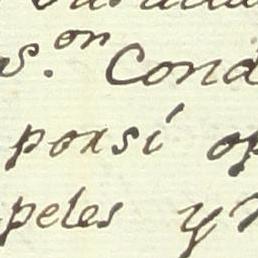 s.on Cond
porsí op
peles y